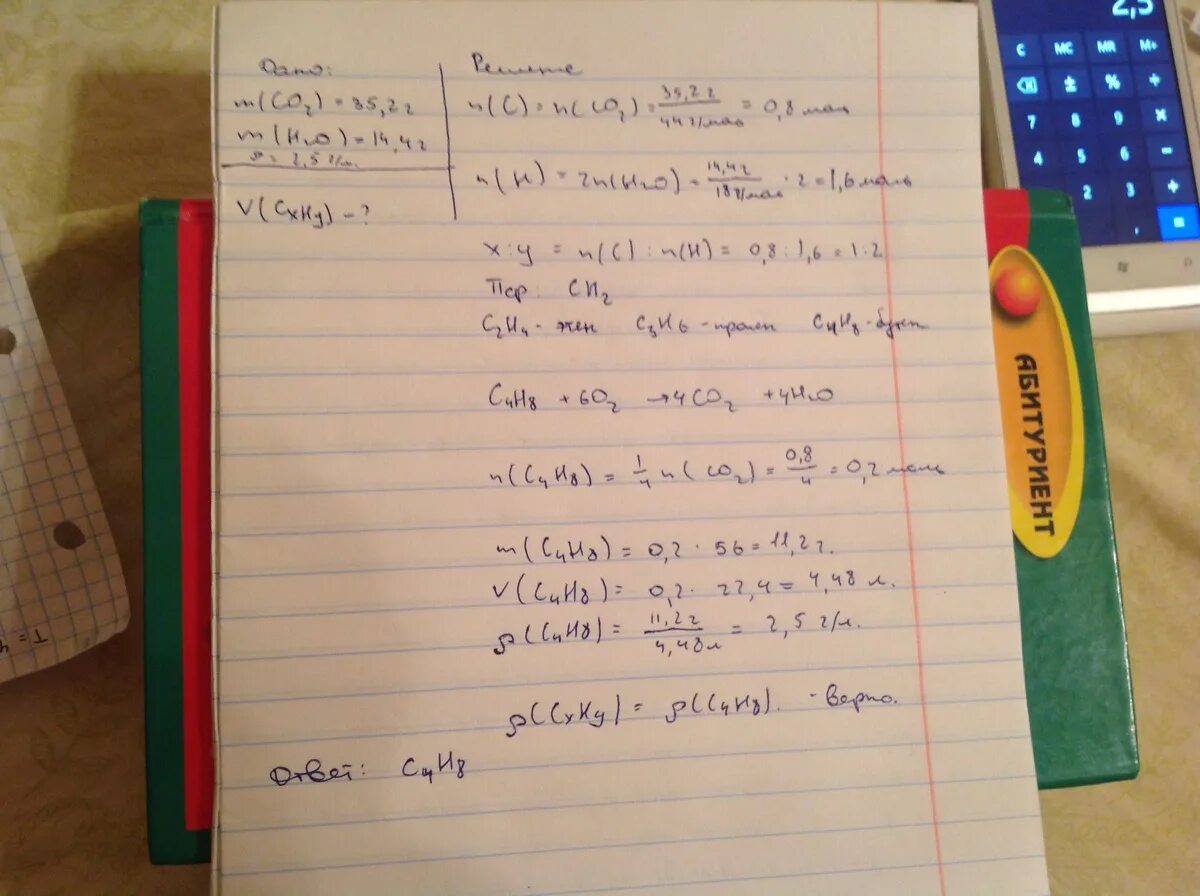 Дано:
m(CO₂) = 35,2 г
m(H₂O) = 14,4 г
ρ = 2,5 г/л.
V(CxHy) - ?
Решение
n(C) = n(CO₂) = 35,2 г / 44 г/моль = 0,8 моль
n(H) = 2n(H₂O) = 14,4 г / 18 г/моль · 2 = 1,6 моль
x : y = n(C) : n(H) = 0,8 : 1,6 = 1 : 2
CH₂
C₂H₄ - этен C₃H₆ - пропен C₄H₈ - бутен
C₄H₈ + 6O₂ → 4CO₂ + 4H₂O
n(C₄H₈) = 1/4 n(CO₂) = 0,8/4 = 0,2 моль
m(C₄H₈) = 0,2 · 56 = 11,2 г.
V(C₄H₈) = 0,2 · 22,4 = 4,48 л.
ρ(C₄H₈) = 11,2 г / 4,48 л = 2,5 г/л.
ρ(CxHy) = ρ(C₄H₈). - верно.
Ответ: C₄H₈
АБИТУРИЕНТ
2,5
C MC MR M+
± % ÷
7 8 9 ×
4 5 6 -
2 3 +
, =
T =